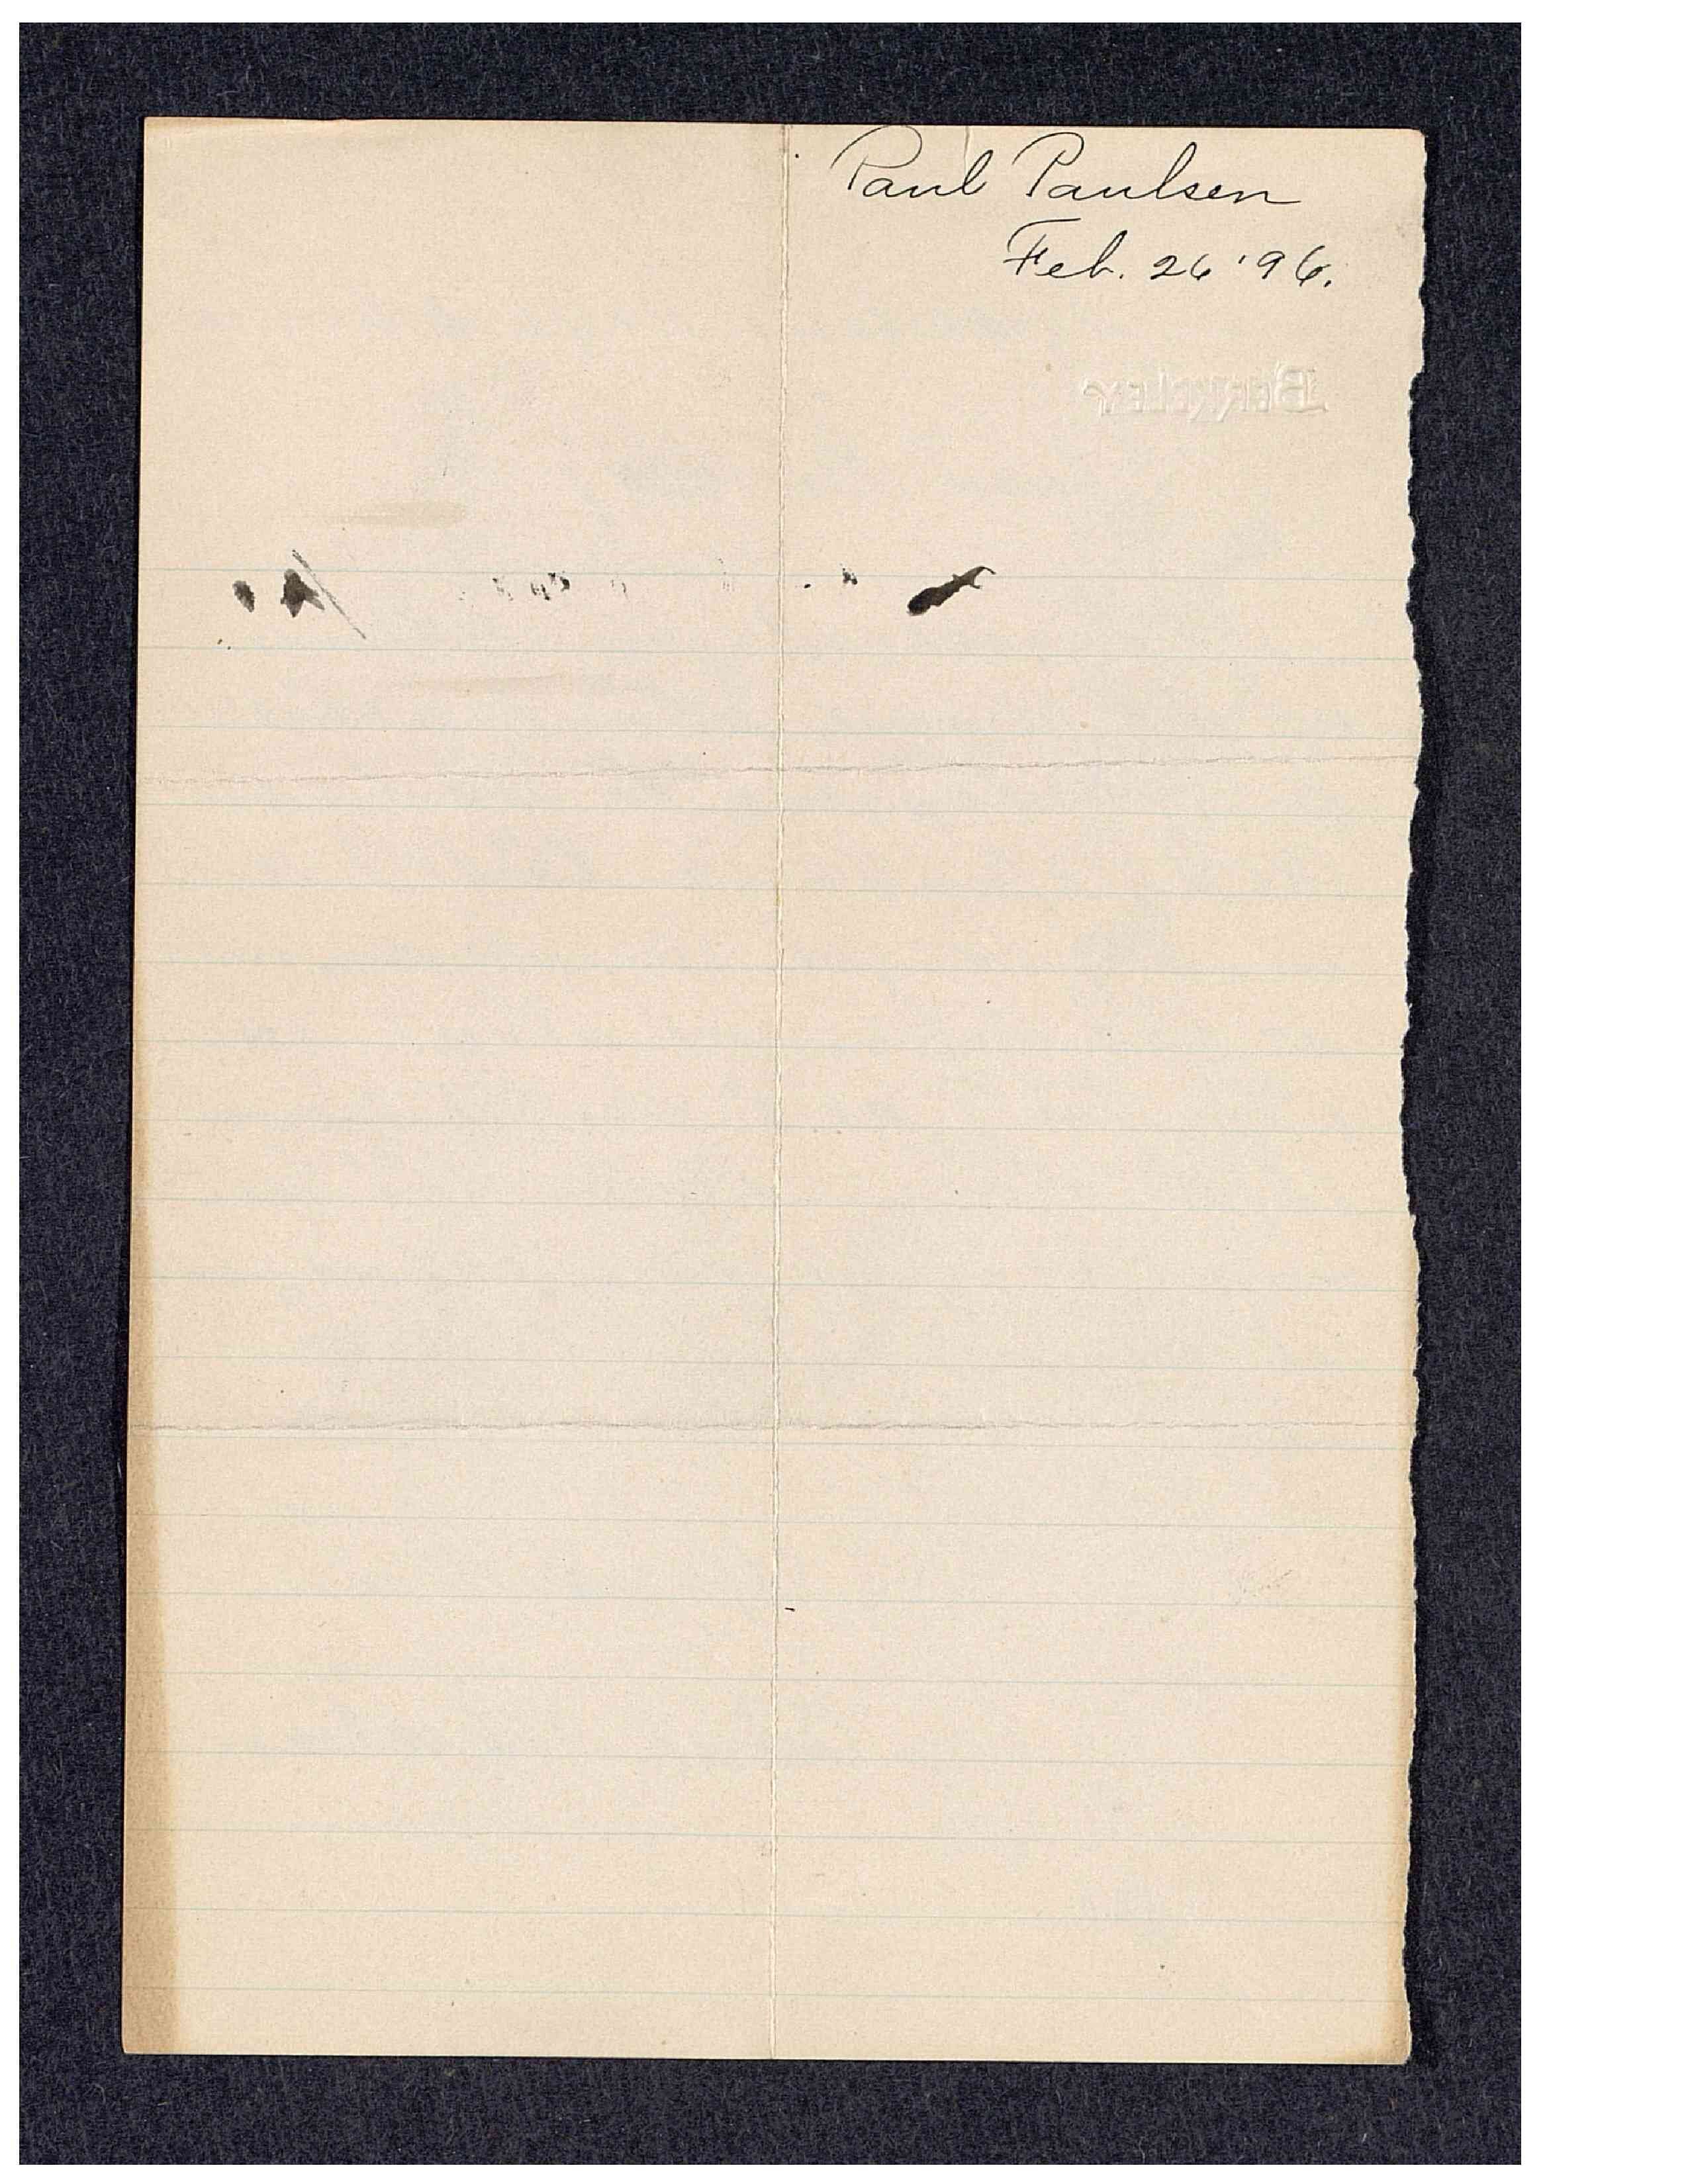 Paul Paulsen
Feb. 26 '96.
BERKELEY